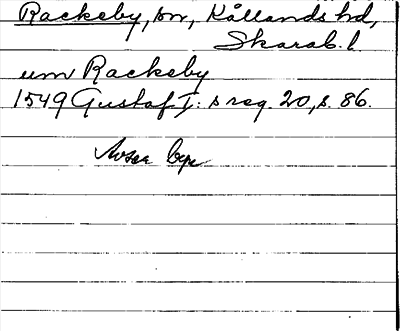 Rackeby, sn, Kållands hd,
Skarab. l.
um Rackeby
1549 Gustaf I: s reg. 20, s. 86.
Avser byn